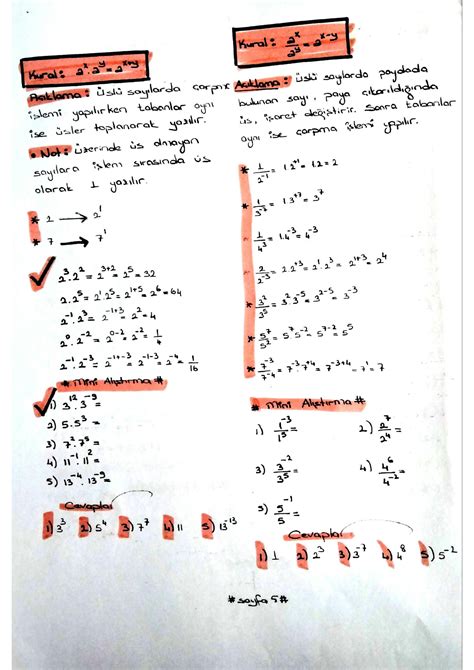 Kural: 2ˣ.2ʸ=2ˣ⁺ʸ
Açıklama: Üslü sayılarda çarpma
işlemi yapılırken tabanlar aynı
ise üsler toplanarak yazılır.
• Not: üzerinde üs olmayan
sayılara işlem sırasında üs
olarak 1 yazılır.
* 2 → 2¹
* 7 → 7¹
2³.2² = 2³⁺² = 2⁵ = 32
2.2⁵ = 2¹.2⁵ = 2¹⁺⁵ = 2⁶ = 64
2⁻¹.2³ = 2⁻¹⁺³ = 2²= 4
2⁰.2⁻² = 2⁰⁻² = 2⁻² = 1/4
2⁻¹.2⁻³ = 2⁻¹⁺⁻³ = 2⁻¹⁻³ = 2⁻⁴ = 1/16
* Mini Alıştırma #
1) 3¹².3⁻⁹ =
2) 5.5³ =
3) 7².7⁵ =
4) 11⁻¹.11² =
5) 13⁻⁴.13⁻⁹ =
Cevaplar
1) 3³ 2) 5⁴ 3) 7⁷ 4) 11 5) 13⁻¹³
Kural: 2ˣ/2ʸ = 2ˣ⁻ʸ
Açıklama: Üslü sayılarda paydada
bulunan sayı, paya çıkarıldığında
üs, işaret değiştirir. Sonra tabanlar
aynı ise çarpma işlemi yapılır.
* 1/2⁻¹ = 1.2⁺¹ = 1.2 = 2
* 1/5⁻⁷ = 1.3⁺⁷ = 3⁷
1/4³ = 1.4⁻³ = 4⁻³
2/2⁻³ = 2.2⁺³ = 2¹.2³ = 2¹⁺³ = 2⁴
* 3²/3⁵ = 3².3⁻⁵ = 3²⁻⁵ = 3⁻³
* 5⁷/5² = 5⁷.5⁻² = 5⁷⁻² = 5⁵
* 7⁻³/7⁻⁴ = 7⁻³.7⁺⁴ = 7⁻³⁺⁴ = 7¹ = 7
* Mini Alıştırma #
1) 1⁻³/1⁵ =
2) 2⁷/2⁴ =
3) 3⁻²/3⁵ =
4) 4⁶/4⁻² =
5) 5⁻¹/5 =
Cevaplar
1) 1 2) 2³ 3) 3⁻⁷ 4) 4⁸ 5) 5⁻²
# sayfa 5 #